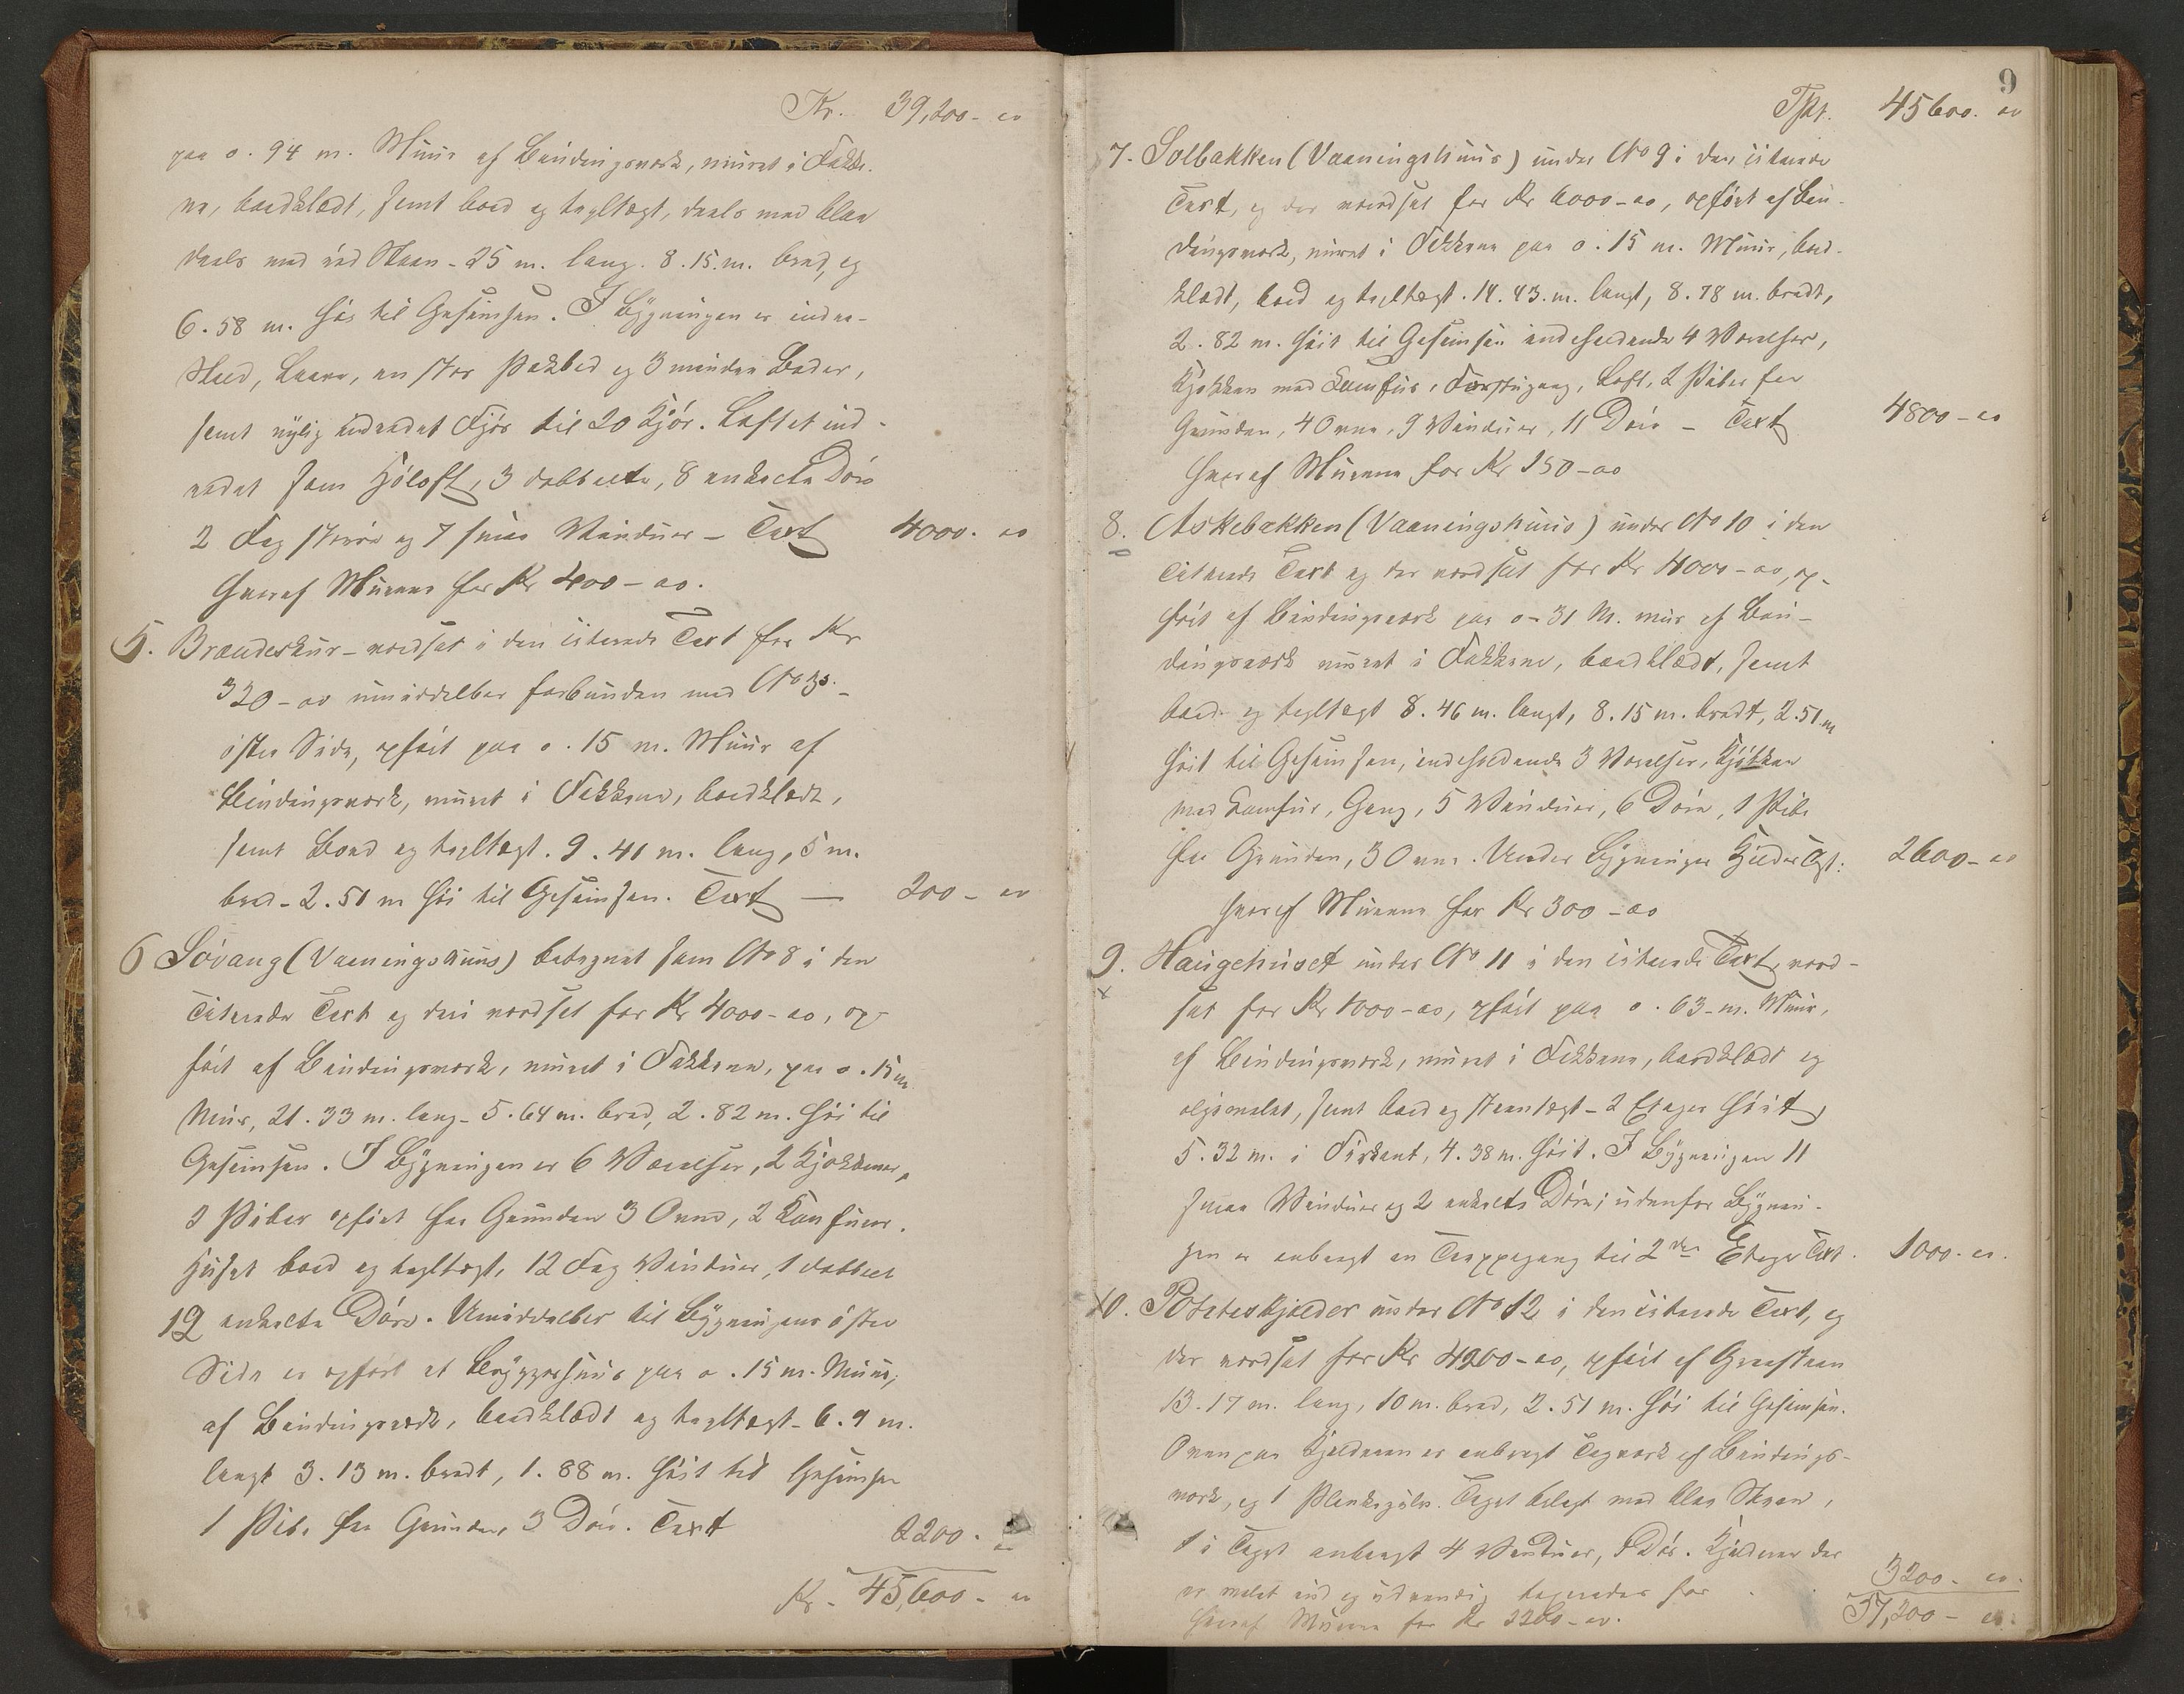 Kr. 39,200- oo
paa o. 94 m. Muur af Bindingsværk, muret i Fakke-
ne, bordklædt, samt bord og tegltægt, deels med blaa
deels med rød Steen - 25 m. lang. 8.15. m. bred, og
6.58 m. høi til Gesimsen. I Bygningen er indre-
Stald, Laave, en stor Pakbod og 3 mindre Boder,
samt nylig indredet Fjøs til 20 Kjør. Loftet ind-
redet som Høloft, 3 dobbelte, 8 enkelte Døre
2 Fag større og 7 smaa Vinduer - Taxt 4000. oo
heraf Murene for Kr 400 - oo.
5. Brændeskuur - værdsat i den citerede Taxt for Kr
320 - oo umiddelbar forbunden med No 3s -
østre Side, opført paa o. 15 m. Muur af
Bindingsværk, muret i Fakkene, bordklædt,
samt Bord og tegltægt. 9.41 m. lang, 5 m.
bred - 2.51 m høi til Gesimsen. Taxt — 200 - oo
6 Sövang (Vaaningshuus) betegnet som No 8 i den
Citerede Taxt og der værdsat for Kr 4000 - oo, op-
ført af Bindingsværk, muret i Fakkene, paa o. 15 m
Muur, 21.33 m. lang - 5.64 m. bred, 2.82 m. høi til
Gesimsen. I Bygningen er 6 Værelser, 2 Kjøkkener,
3 Piber opført fra Grunden 3 Ovne, 2 Komfurer.
Huset bord og tegltægt, 12 Fag Vinduer, 1 dobbelt
12 enkelte Døre. Umiddelbar til Bygningens østre
Side er opført et Bryggerhuus paa o. 15 m. Muur,
af Bindingsværk, bordklædt og tegltægt - 6.9 m.
langt 3.13 m. bredt, 1.88 m. høit til Gesimsen
1 Pibe fra Grunden, 3 Døre. Taxt 2200. oo
Kr. 45,600 - oo
9
Tpt. 45600. oo
7. Solbakken (Vaaningshuus) under No 9 i den citerede
Taxt, og der værdsat for Kr 6000 - oo, opført af Bin-
dingsværk, muret i Fakkene paa o. 15 m. Muur, bord-
klædt, bord og tegltægt. 14.43. m. langt, 8.78 m. bredt,
2.82 m. høit til Gesimsen indeholdende 4 Værelser,
Kjøkken med Komfur, Forstugang, Loft, 2 Piber fra
Grunden, 4 Ovne, 9 Vinduer, 11 Døre - Taxt 4800 - oo
heraf Murene for Kr 150 - oo
8. Askebakken (Vaaningshuus) under No 10 i den
Citerede Taxt og der værdsat for Kr 4000 - oo, op-
ført af Bindingsværk paa o - 31 M. mur af Bin-
dingsværk muret i Fakkene, bordklædt, samt
bord- og tegltægt 8.46 m. langt, 8.15 m. bredt, 2.51 m
høit til Gesimsen, indeholdende 3 Værelser, Kjøkken
med Komfur, Gang, 5 Vinduer, 6 Døre, 1 Pibe
fra Grunden, 3 Ovne. Under Bygningen Kjelder Txt: 2600 - oo
heraf Murene for Kr 300 - oo
9. Haugehuset under No 11 i den citerede Taxt, værd-
sat for Kr 1000 - oo, opført paa o. 63 - m. Muur,
af Bindingsværk, muret i Fakkene, bordklædt og
oljemalet, samt bord og steentægt - 2 Etager høit,
5.32 m. i Firkant, 4.38 m. høit. I Bygningen 11
smaa Vinduer og 2 enkelte Døre; udenfor Bygnin-
gen er anbragt en Trappegang til 2den Etage Taxt. 1000. oo.
10. Potteskjælder under No 12 i den citerede Taxt, og
der værdsat for Kr 4200 - oo, opført af Graasteen
13.17 m. lang, 10 m. bred, 2.51 m. høi til Gesimsen.
Ovenpaa Kjælderen er anbragt Tagværk af Bindings-
værk, og 1 Plankegulv. Taget belagt med blaa Steen,
1 i Taget anbragt 4 Vinduer, 1 Dør. Kjælderen der
er malet ind og udvendig taxeredes for 3200 - oo.
heraf Murene for Kr 2200 - oo. 57,200 - oo.